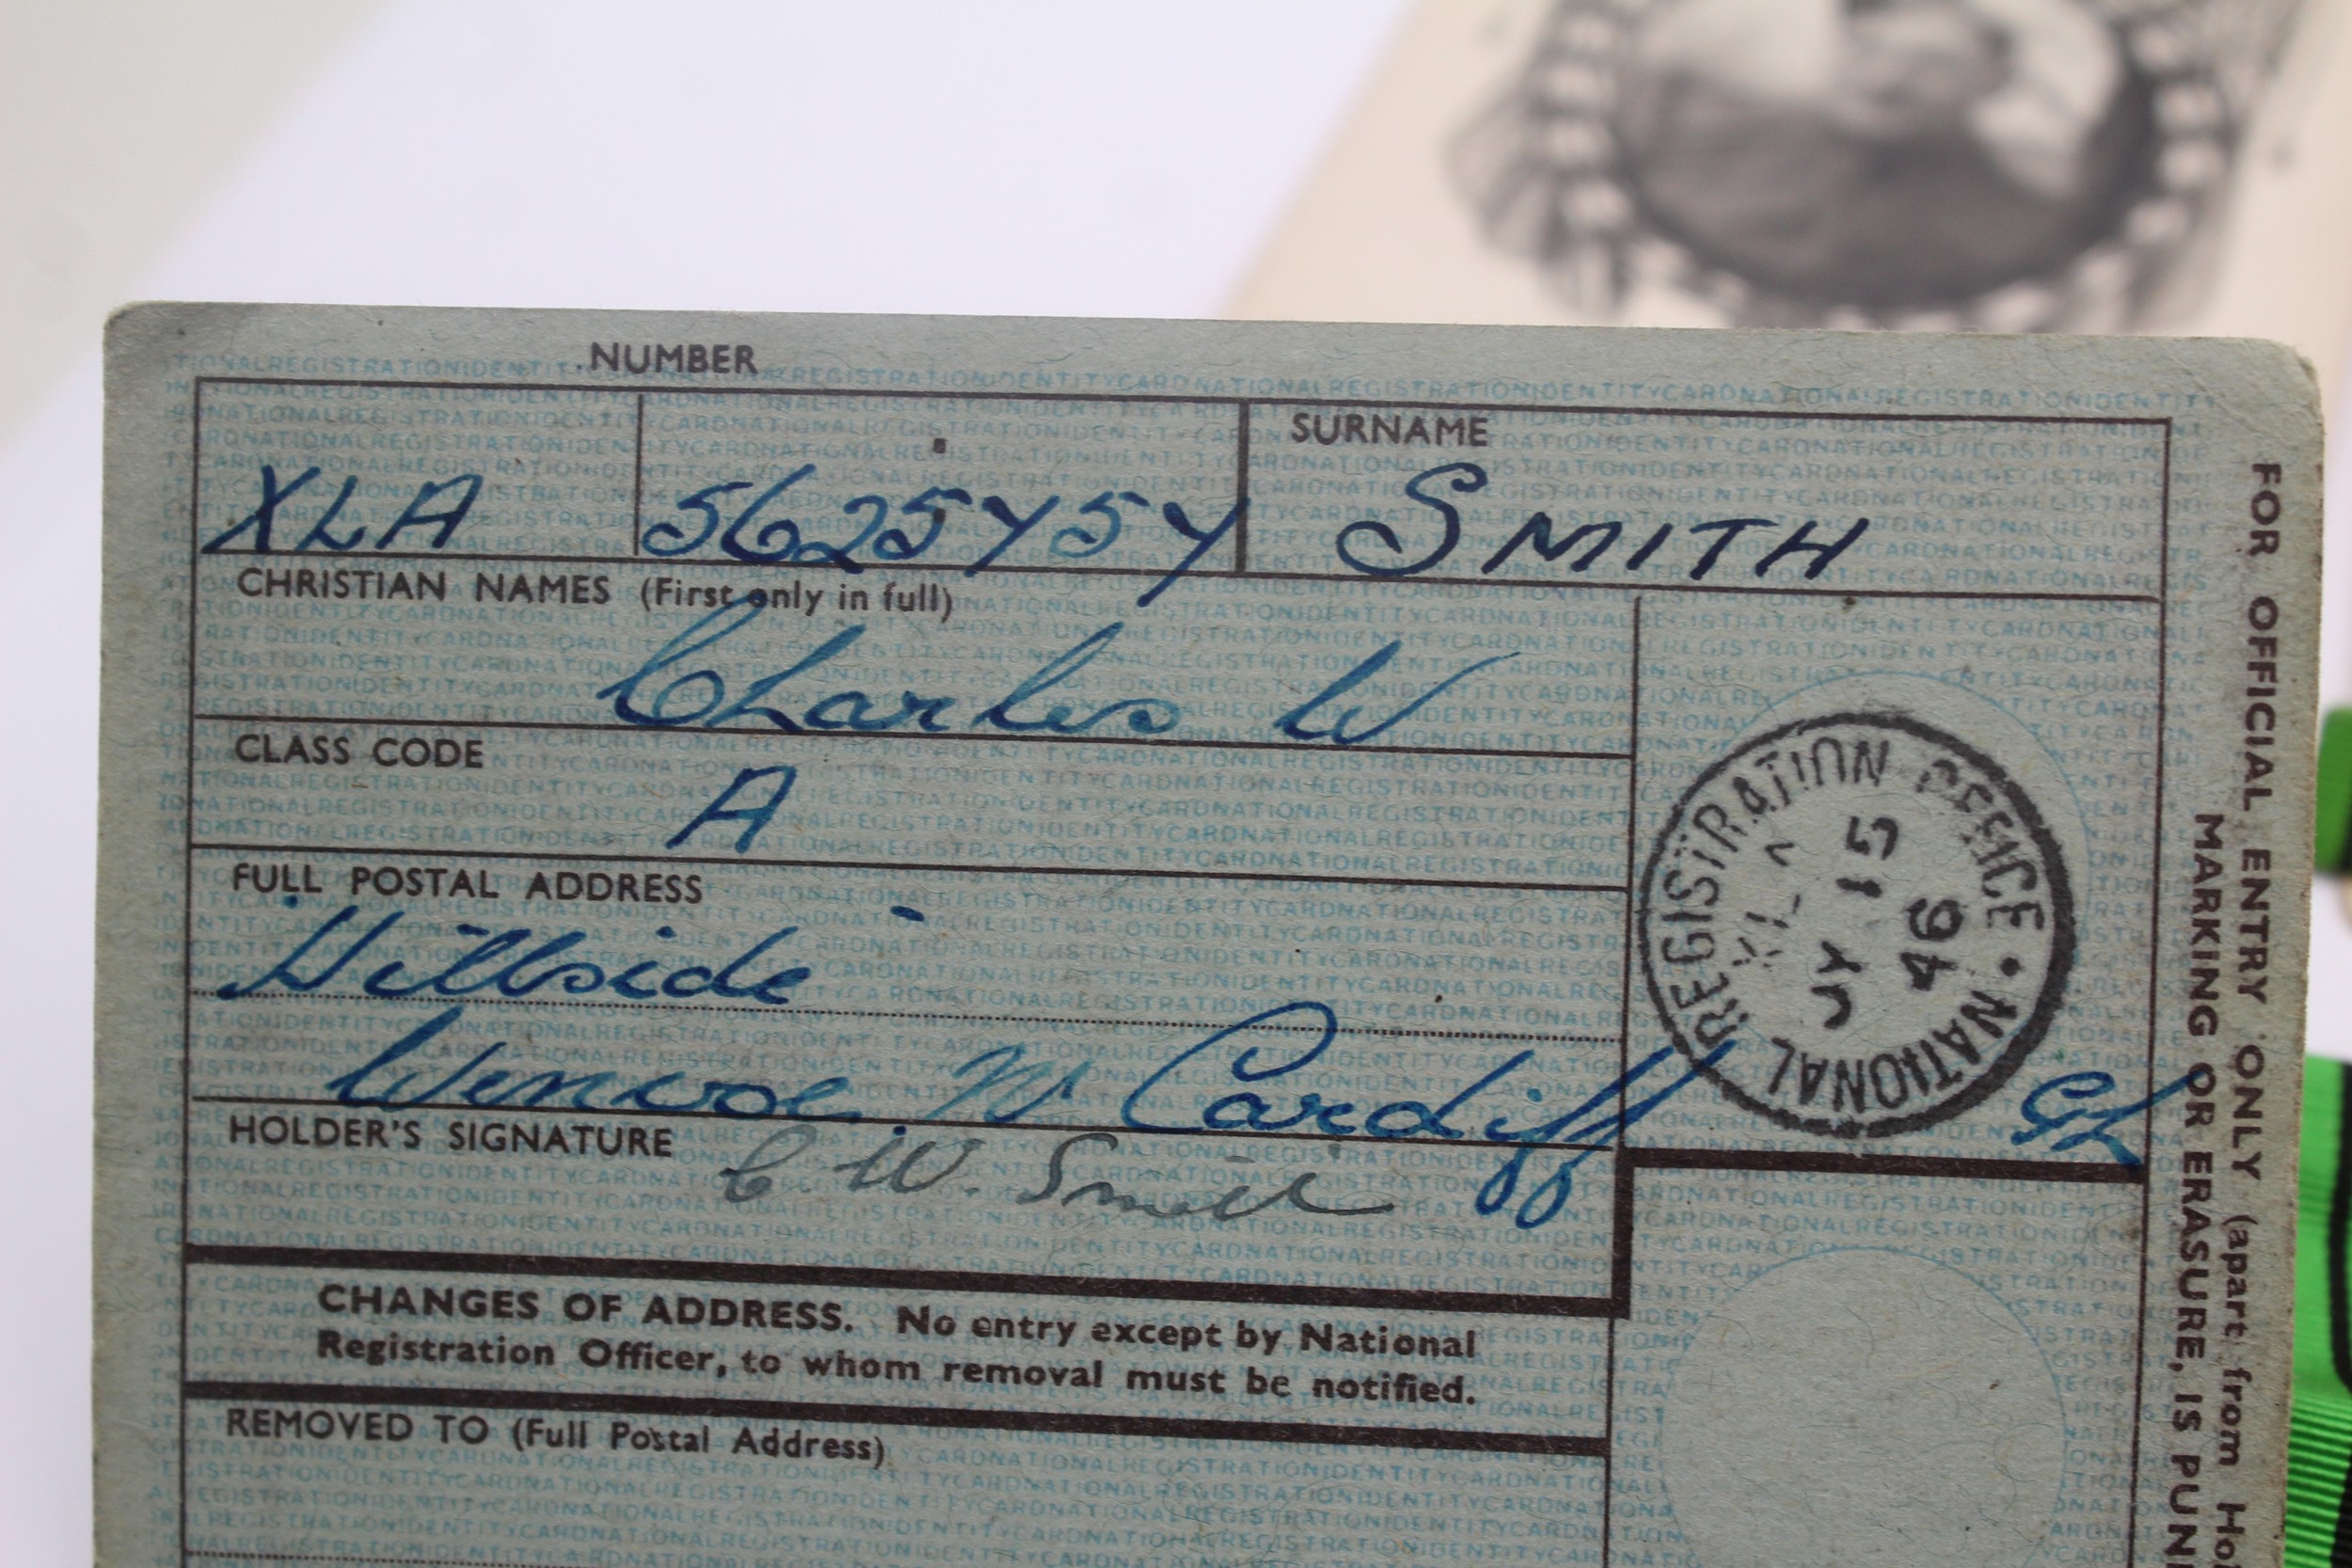 NUMBER
XLA 5625Y5Y
SURNAME
SMITH
CHRISTIAN NAMES (First only in full)
Charles W
CLASS CODE
A
FULL POSTAL ADDRESS
Hillside
Wenvoe Nr Cardiff
HOLDER'S SIGNATURE C W. Smith
NATIONAL REGISTRATION OFFICE
46
CHANGES OF ADDRESS. No entry except by National
Registration Officer, to whom removal must be notified.
REMOVED TO (Full Postal Address)
FOR OFFICIAL ENTRY ONLY (apart from Ho
MARKING OR ERASURE, IS PUN